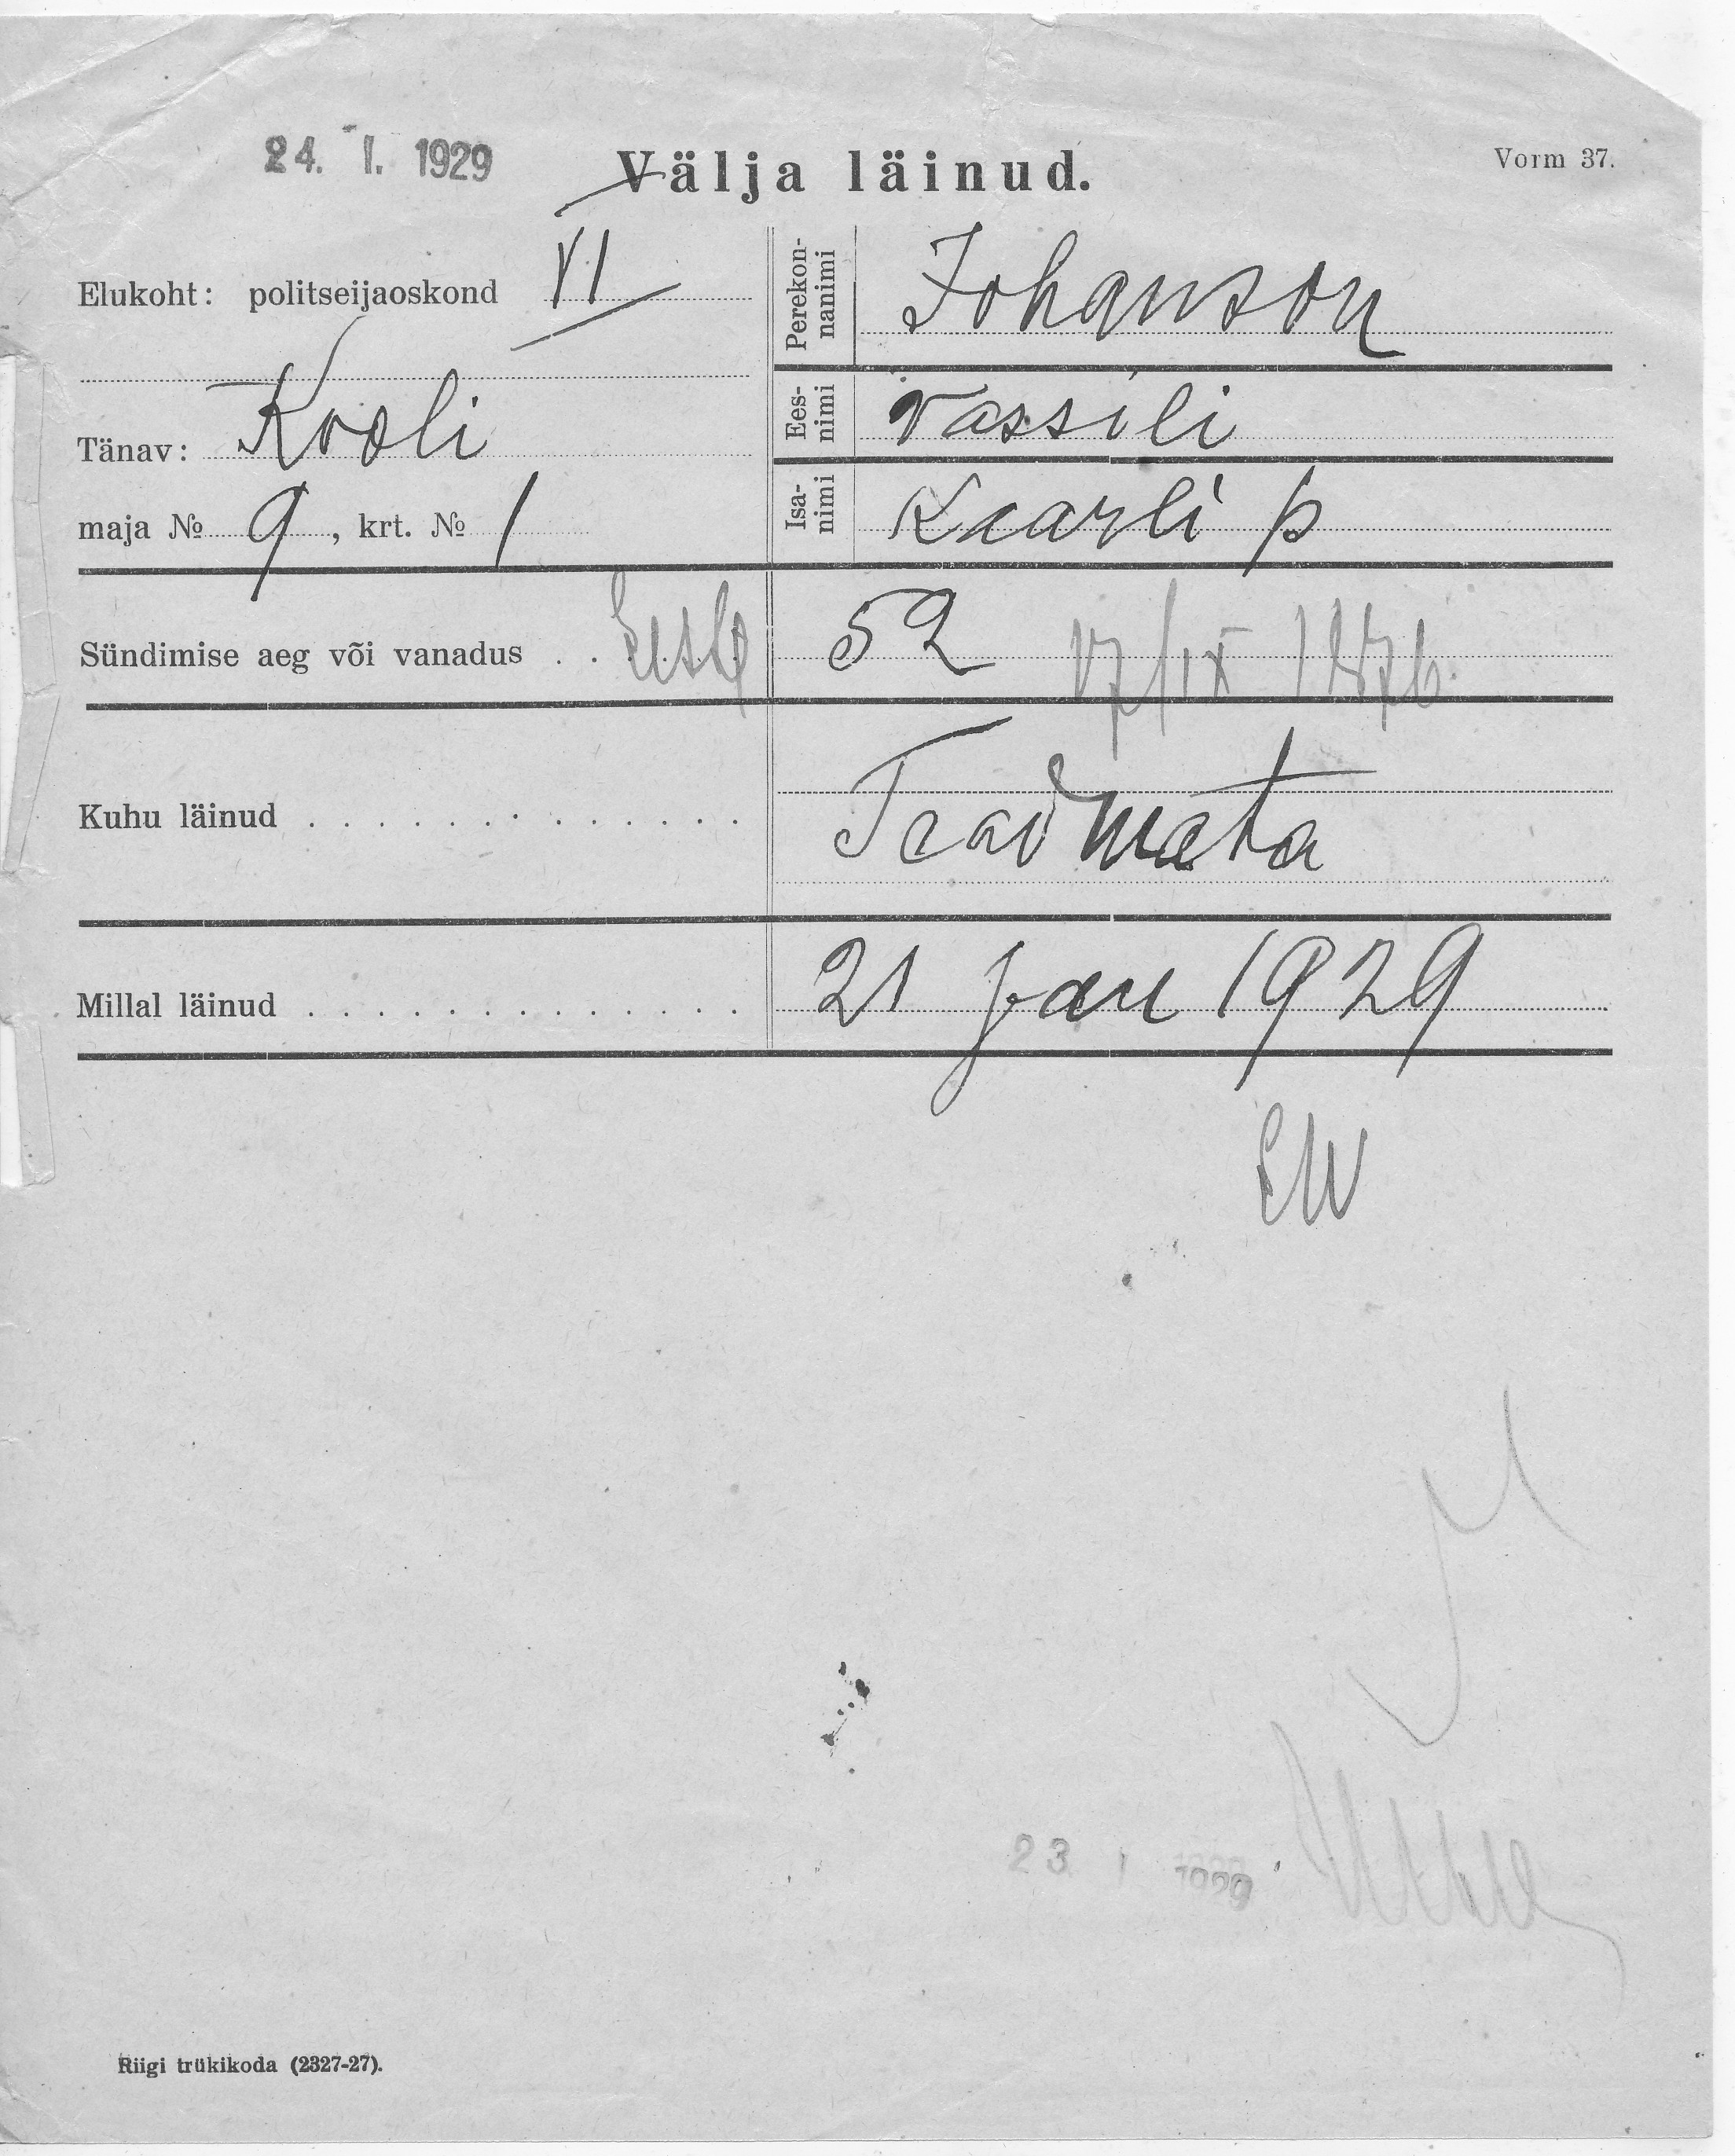 24. I. 1929
Välja läinud.
Vorm 37.
Elukoht: politseijaoskond VI
Tänav: Kooli
maja № 9, krt. № 1
Perekon-
nanimi
Johanson
Ees-
nimi
Vassili
Isa-
nimi
Kaarli p
Sündimise aeg või vanadus . . 52 17/IX 1876.
Kuhu läinud . . . . . . . . . . . . . Teadmata
Millal läinud . . . . . . . . . . . . . 21 jan 1929
EW
23 I 1929
Riigi trükikoda (2327-27).